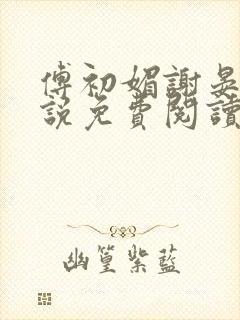 傅初媚謝晏
說免費閱讀
幽篁紫藍